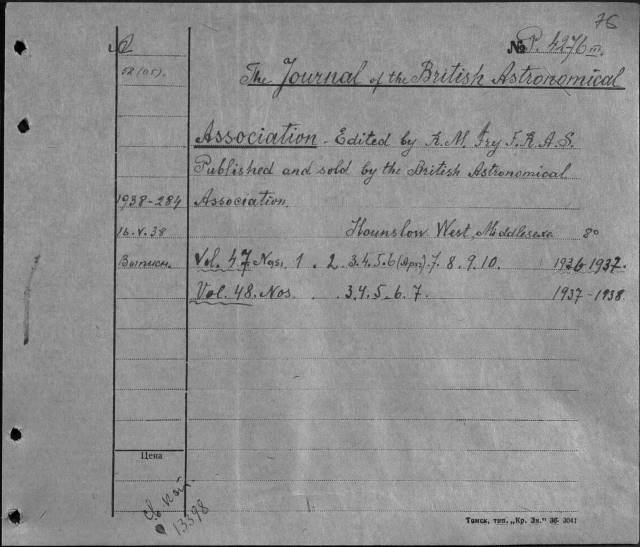 76
№ P. 4276 III.
52(05).
The Journal of the British Astronomical
Association. Edited by R. M. Fry F.R.A.S.
Published and sold by the British Astronomical
1938-284 Association.
16.V.38 Hounslow West, Middlesex 8°
Выписн. Vol. 47 Nos. 1. 2. 3.4.5.6 7. 8. 9. 10. 1936-1937.
Vol. 48. Nos. 3.4.5.6.7. 1937-1938
Цена
13398
Томск, тип. „Кр. Зн." 36 3041